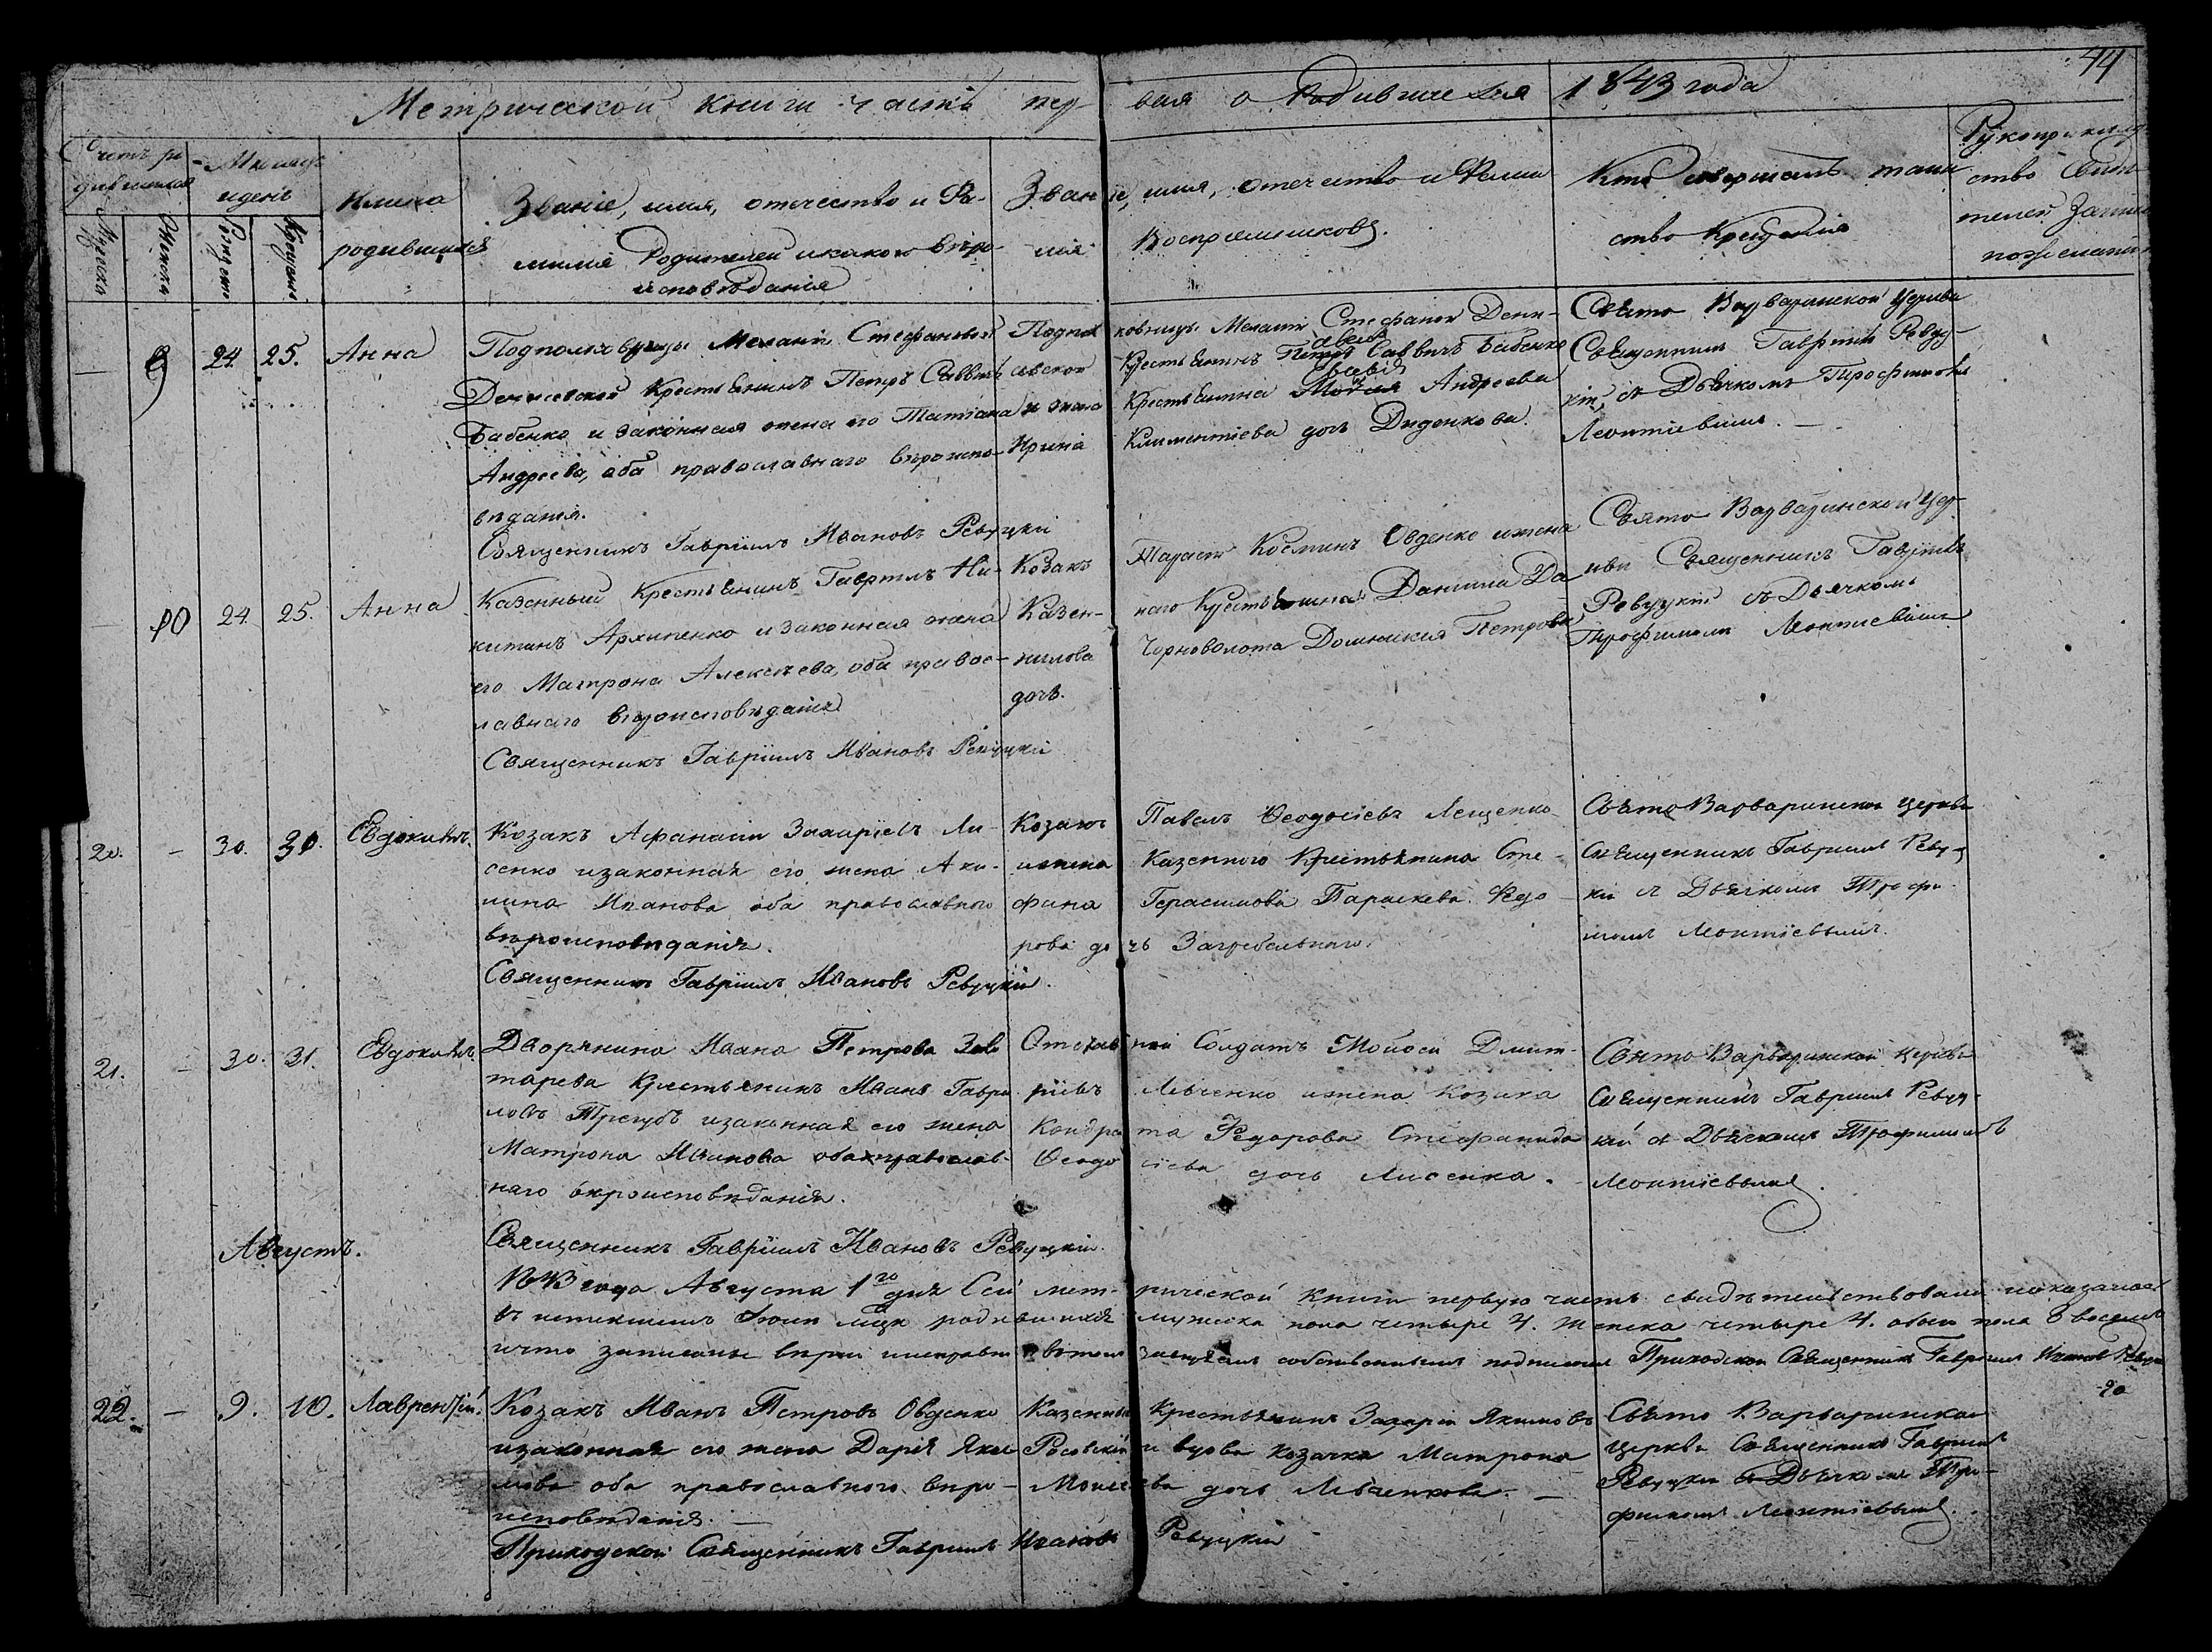 44
Метрической книги часть пер- вая о Родившихся 1843 года
Счетъ ро-
дившихся
Мужеска
Женска
Месяцъ
и день
Рождение
Крещение
Имена
родившихся
Званіе, имя, отечество и Фа-
милія Родителей и какого веро-
исповѣданія
Званіе, имя, отечество и Фами-
лія Воспріемниковъ.
Кто совершалъ таин
ство Крещенія
Рукоприклад
ство Свидѣ-
телей записи
по желанію
9 24. 25. Анна
Подполковницы Меланіи Стефановой
Денисевской Крестьянинъ Петръ Саввичъ
Бабенко и законная жена его Татіана
Андреева, оба православнаго вѣроиспо-
вѣданія.
Священникъ Гавріилъ Ивановъ Ревуцкій
Подпол ковницы Меланіи Стефанов Дени-
авской Крестьянинъ Саввичъ Бабенко
и жена Крестьянина Андреева
Ирина Климентіева дочь Диденкова.
Свято Варваринской Церкви
Священникъ Гавріилъ Реву-
кій, съ Дьячкомъ Трофимомъ
Леонтіевымъ.
10 24. 25. Анна
Казенный Крестьянинъ Гавріилъ Ни-
китинъ Архипенко и законная жена
его Матрона Алексѣева, оба правос-
лавнаго вѣроисповѣданія
Священникъ Гавріилъ Ивановъ Ревуцкій
Козакъ Тарасій Косминъ Овденко и жена
Казен- наго Крестьянина Даниила Да
нилова Чорноволота Домникія Петрова
дочь.
Свято Варваринской Цер-
кви Священникъ Гавріилъ
Ревуцкій съ Дьячкомъ
Трофимомъ Леонтіевымъ
20. - 30. 30. Евдокимъ.
Козакъ Афанасій Захаріевъ Ли-
сенко и законная его жена Аки-
лина Иванова оба православного
вѣроисповѣданія.
Священникъ Гавріилъ Ивановъ Ревуцкій.
Козакъ Павелъ Ѳеодосіевъ Лещенко
и жена Казенного Крестьянина Сте-
фана Герасимова Параскева Федо-
рова до чь Загребельного.
Свято Варваринской церкви
Священникъ Гавріилъ Ревуц
кій съ Дьячкомъ Трофи-
момъ Леонтіевымъ.
21. - 30. 31. Евдокимъ.
Дворянина Ивана Петрова
Крестьянинъ Иванъ Гаври
ловъ Трегубъ и законная его жена
Матрона Иванова оба православ-
наго вѣроисповѣданія.
Священникъ Гавріилъ Ивановъ Ревуцкій.
Отстав ной Солдатъ Мойсей Дмит-
ріевъ Левченко и жена Козака
Кондра та Федорова Стефанида
Ѳеодо сіева дочь Лисенка.
Свято Варваринской церкви
Священникъ Гавріилъ Ревуц-
кій съ Дьячкомъ Трофимомъ
Леонтіевымъ.
Августъ.
1843 года Августа 1го дня Сей мет- рической книги первую часть свидѣтельствовали и оказалось
въ истекшемъ Іюли мѣсяце родившихся мужеска пола четыре 4. Женска четыре 4. обоего пола 8 восемь
и что записаны верно и исправно въ томъ завѣряемъ собственнымъ подписомъ Приходской Священникъ Гавріилъ Ивановъ Ревуц
22. - 9. 10. Лаврентій.
Козакъ Иванъ Петровъ Овденко
и законная его жена Дарія Яки-
мова оба православного вѣро-
исповѣданія.
Приходской Священникъ Гавріилъ Ивановъ Ревуцкій
Казенный Крестьянинъ Захарій Якимовъ
Росовскій и вдова козачка Матрона
Моисеева дочь Левченкова.
Свято Варваринской
церкви Священникъ Гавріилъ
Ревуцкій съ Дьячкомъ Тро-
фимомъ Леонтіевымъ.